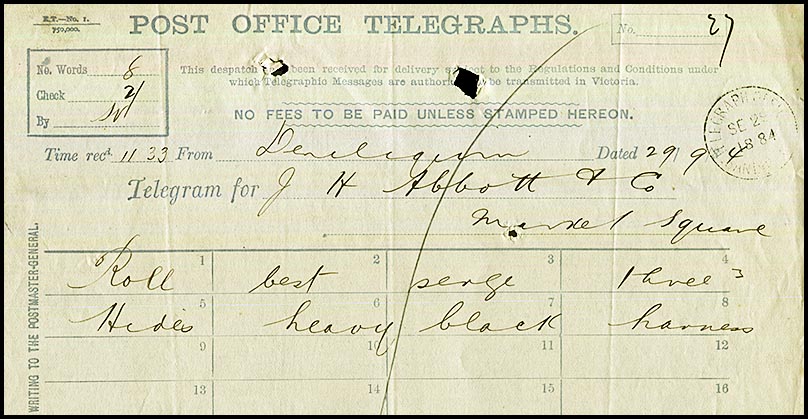 E.T.—No. 1.
750,000.
POST OFFICE TELEGRAPHS.
No. 27
No. Words 8
Check 2/
By
This despatch has been received for delivery subject to the Regulations and Conditions under
which Telegraphic Messages are authorised to be transmitted in Victoria.
NO FEES TO BE PAID UNLESS STAMPED HEREON.
TELEGRAPH
SE 29
84
Time recd. 11 33 From Deniliquin Dated 29/9/4
Telegram for J H Abbott & Co
Market Square
1 2 3 4
Roll best serge three 3
5 6 7 8
Hides heavy black harness
9 10 11 12
13 14 15 16
WRITING TO THE POSTMASTER-GENERAL.